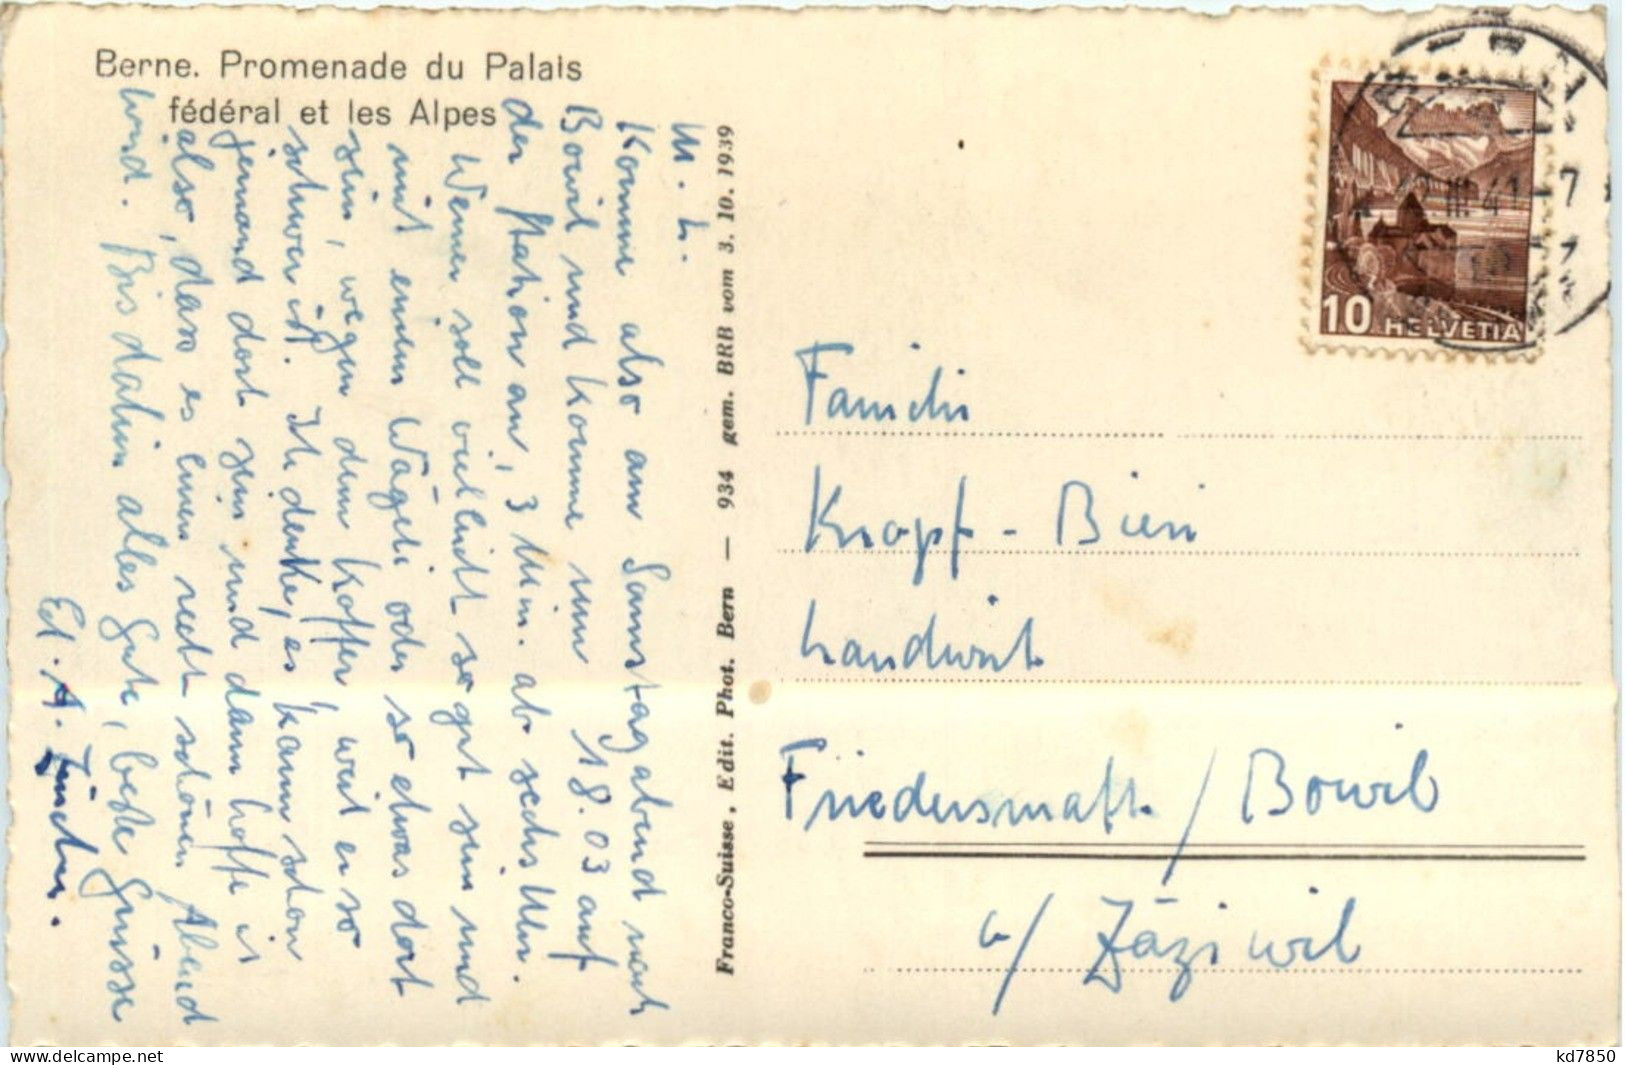 Berne. Promenade du Palais
fédéral et les Alpes
M. L.
Komme also am Samstag abend nach
Bowil und komme um 18.03 auf
der Station an, 3 Min. ab sechs Uhr.
Wenner soll vielleicht so gut sein und
mit einem Wägeli oder so etwas dort
sein, wegen dem Koffer, weil er so
schwer ist. Ich denke, es kann schon
jemand dort sein und dann hoffe ich
also, dass es einen recht schönen Abend
wird. Bis dahin alles Gute, beste Grüsse
Ed. A.
Franco-Suisse, Edit. Phot. Bern — 934 gem. BRB vom 3. 10. 1939
III 41-7
10 HELVETIA
Familie
Kropf - Bieri
Landwirt
Friedersmatt / Bowil
b/ Zäziwil
kd7850
www.delcampe.net